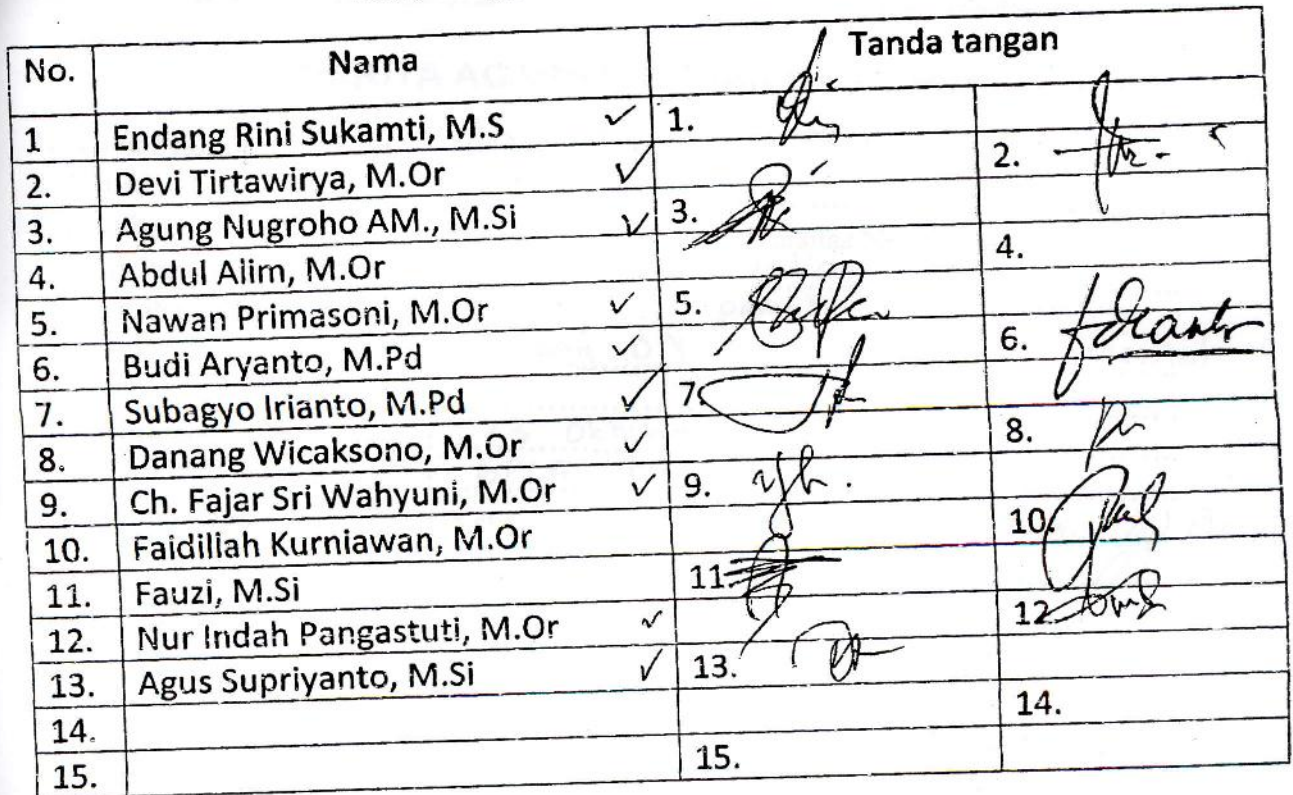 No. Nama Tanda tangan
1 Endang Rini Sukamti, M.S ✓ 1.
2. Devi Tirtawirya, M.Or ✓ 2.
3. Agung Nugroho AM., M.Si ✓ 3.
4. Abdul Alim, M.Or 4.
5. Nawan Primasoni, M.Or ✓ 5.
6. Budi Aryanto, M.Pd ✓ 6.
7. Subagyo Irianto, M.Pd ✓ 7.
8. Danang Wicaksono, M.Or ✓ 8.
9. Ch. Fajar Sri Wahyuni, M.Or ✓ 9.
10. Faidillah Kurniawan, M.Or 10.
11. Fauzi, M.Si 11.
12. Nur Indah Pangastuti, M.Or ✓ 12.
13. Agus Supriyanto, M.Si ✓ 13.
14. 14.
15. 15.